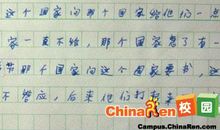 这个国家向那个国家给他们一点
家一直不给，那个国家急了有一
节那个国家向这个国家要书，这
不答应，后来他们打起来
ChinaRen 校园
Campus.ChinaRen.com